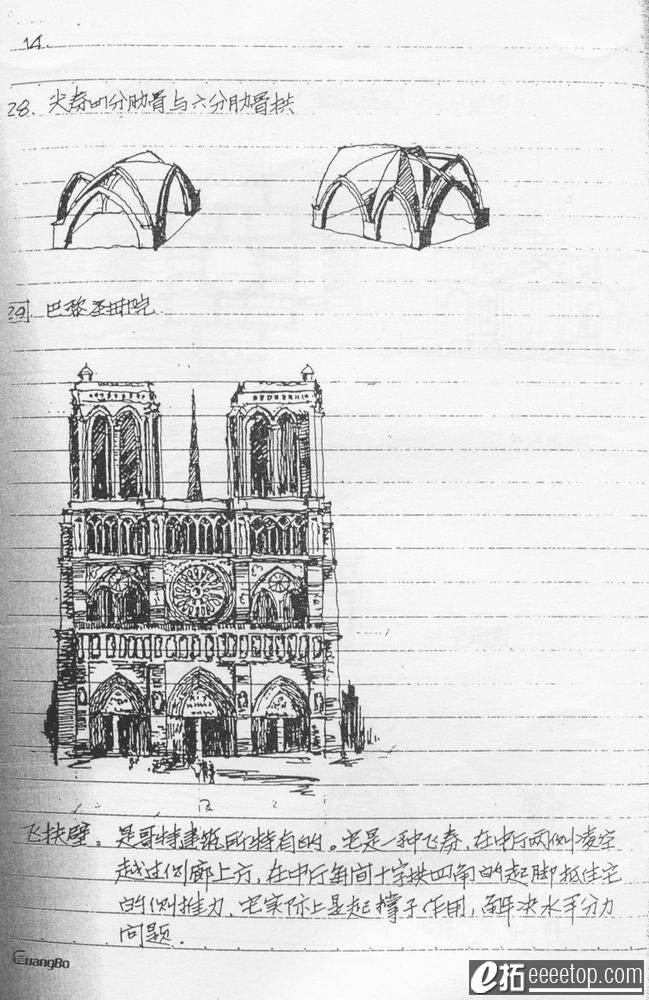 14
28. 尖券四分肋骨与六分肋骨拱
29. 巴黎圣母院
飞扶壁：是哥特建筑所特有的。它是一种飞券，在中厅两侧凌空
越过侧廊上方，在中厅每间十字拱四角的起脚抵住它
的侧推力，它实际上是起撑子作用，解决水平分力
问题.
GuangBo
e拓 eeeetop.com